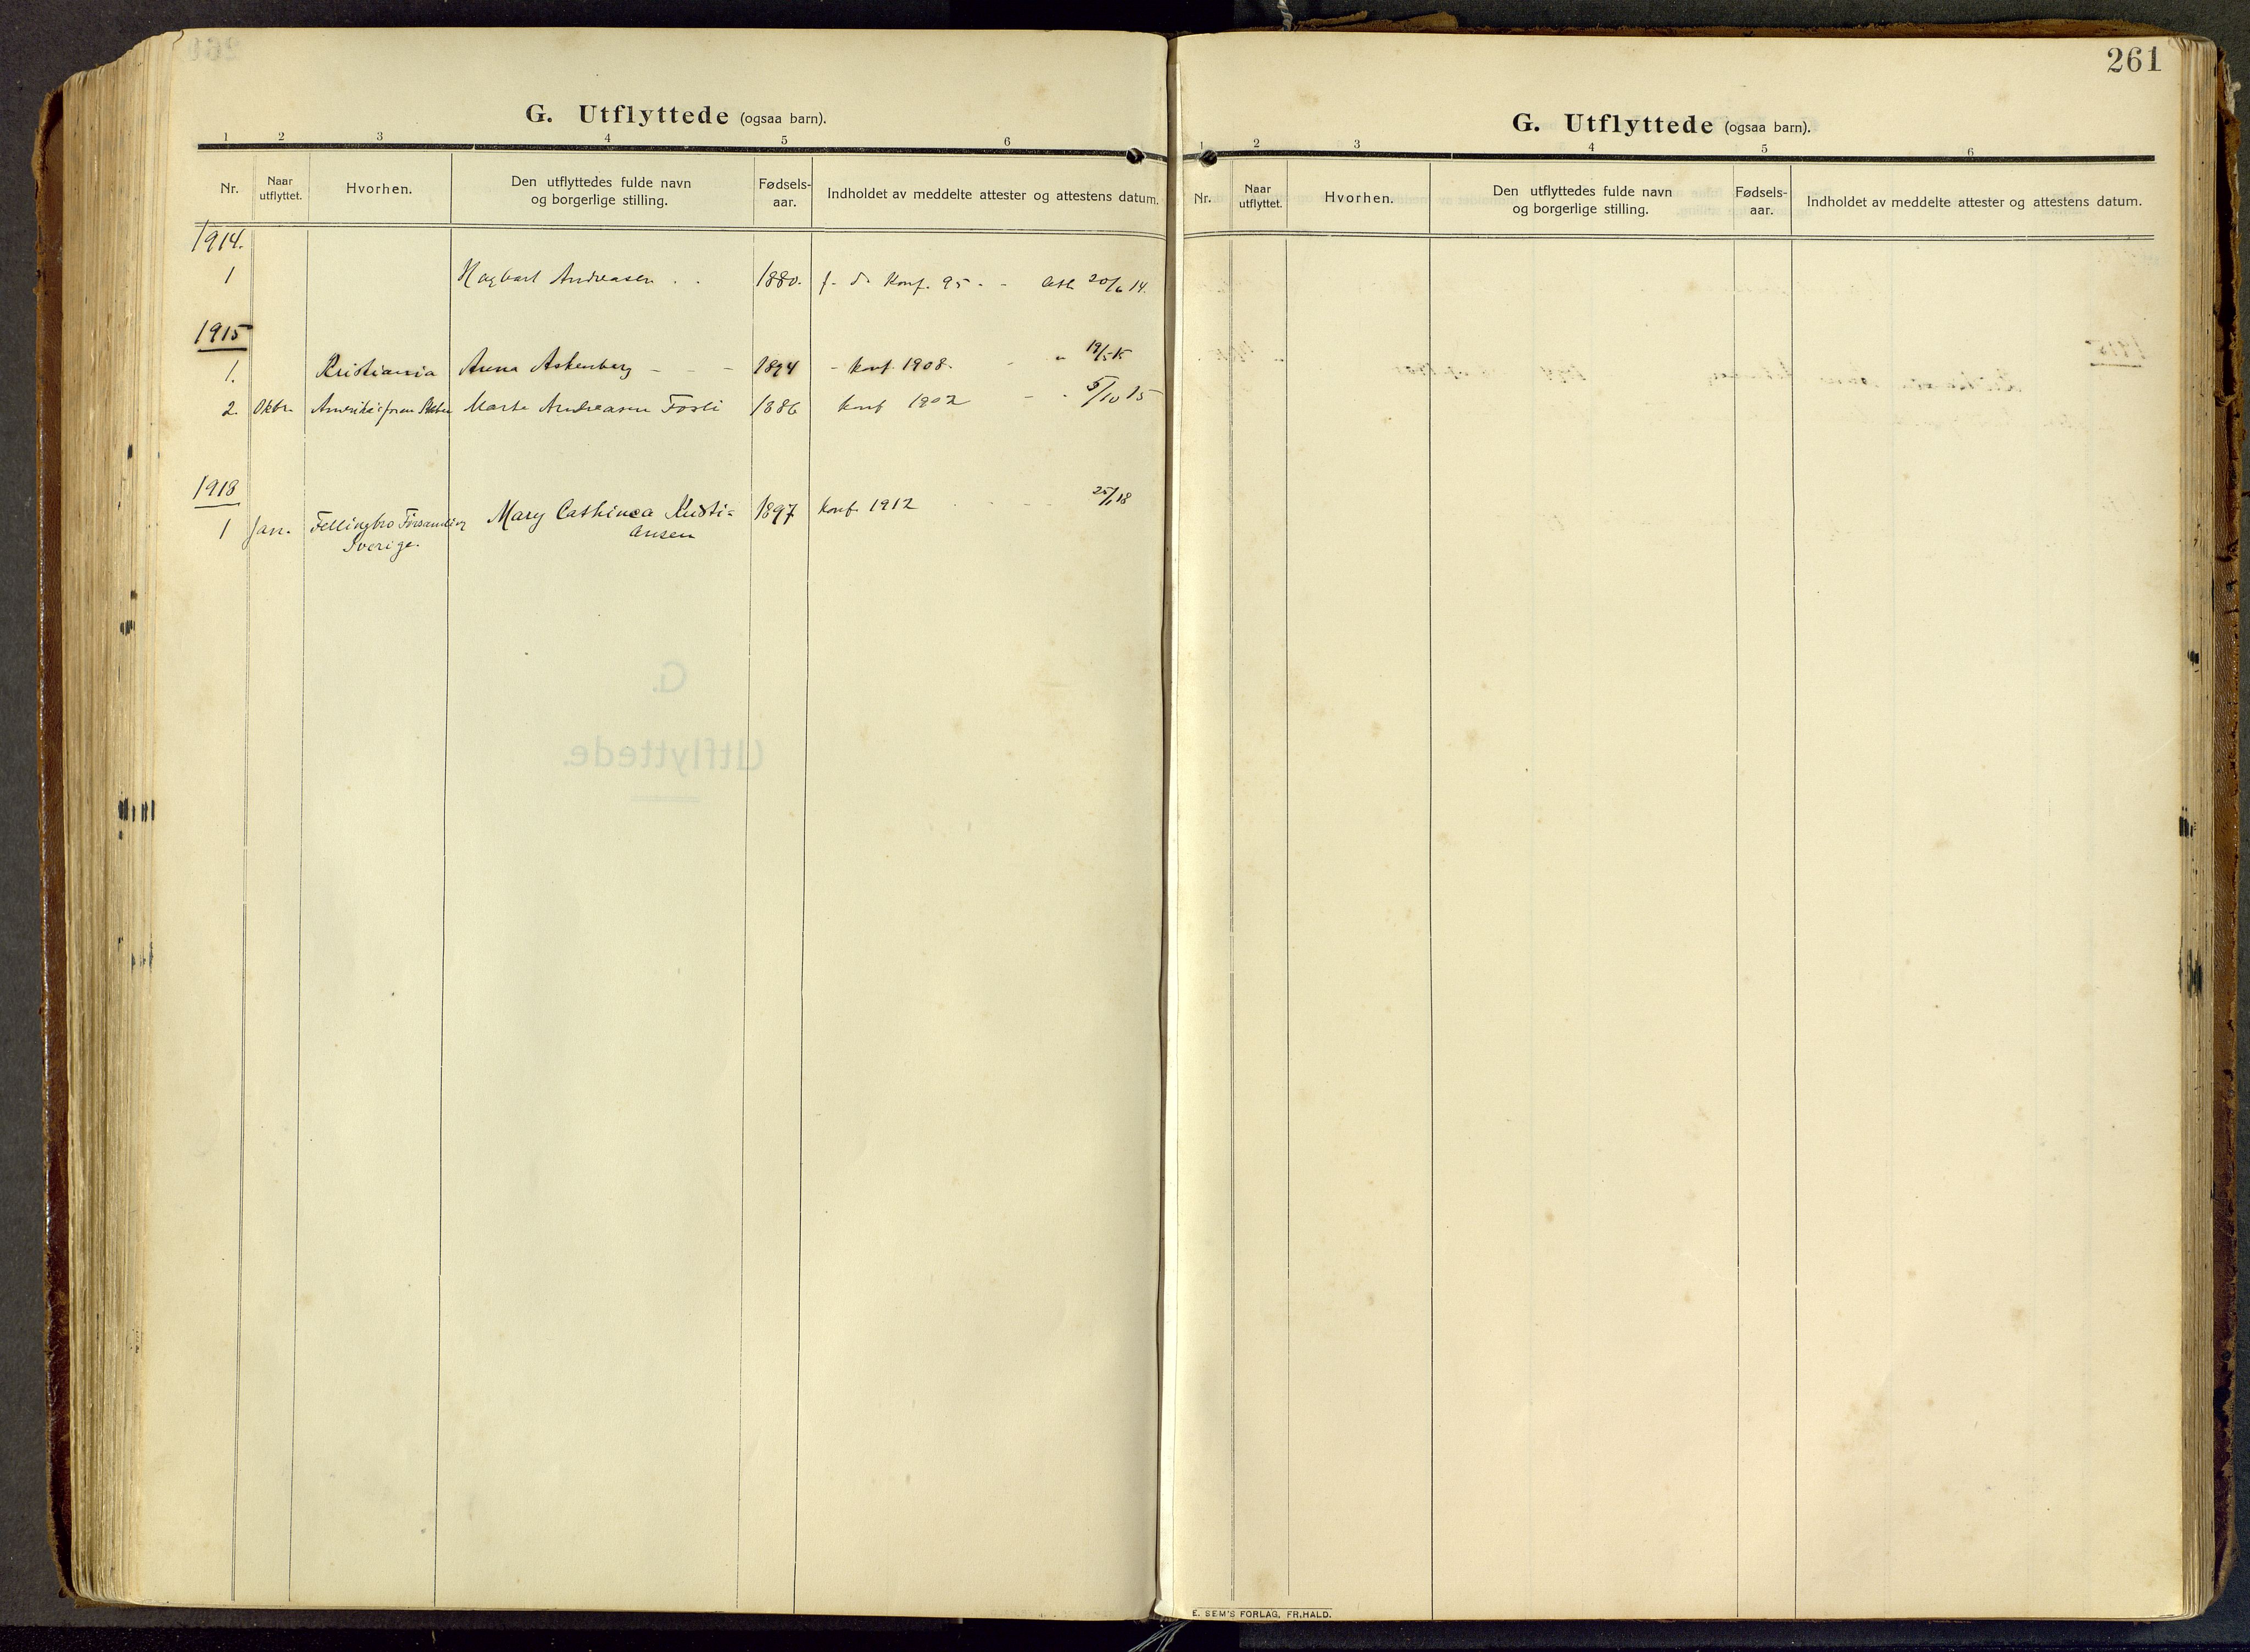 G. Utflyttede (ogsaa barn).
1 2 3 4 5 6
Nr. Naar utflyttet. Hvorhen. Den utflyttedes fulde navn og borgerlige stilling. Fødsels-aar. Indholdet av meddelte attester og attestens datum.
1914.
1 Hagbart Andreasen . . 1880. f. d. Konf. 95 - - att. 20/6 14.
1915
1. Kristiania Anna Askenberg - - - 1894 - konf. 1908. - " 19/5 15
2. Oktbr. Amerikas foren Stater Marte Andreasen Fosli 1886 konf 1902 - - 5/10 15
1918
1 Jan. Fellingbro Församling Mary Cathinca Kristi= 1897 konf. 1912 - - - 25/1 18
Sverige. ansen
261
G. Utflyttede (ogsaa barn).
1 2 3 4 5 6
Nr. Naar utflyttet. Hvorhen. Den utflyttedes fulde navn og borgerlige stilling. Fødsels-aar. Indholdet av meddelte attester og attestens datum.
E. SEM'S FORLAG, FR.HALD.